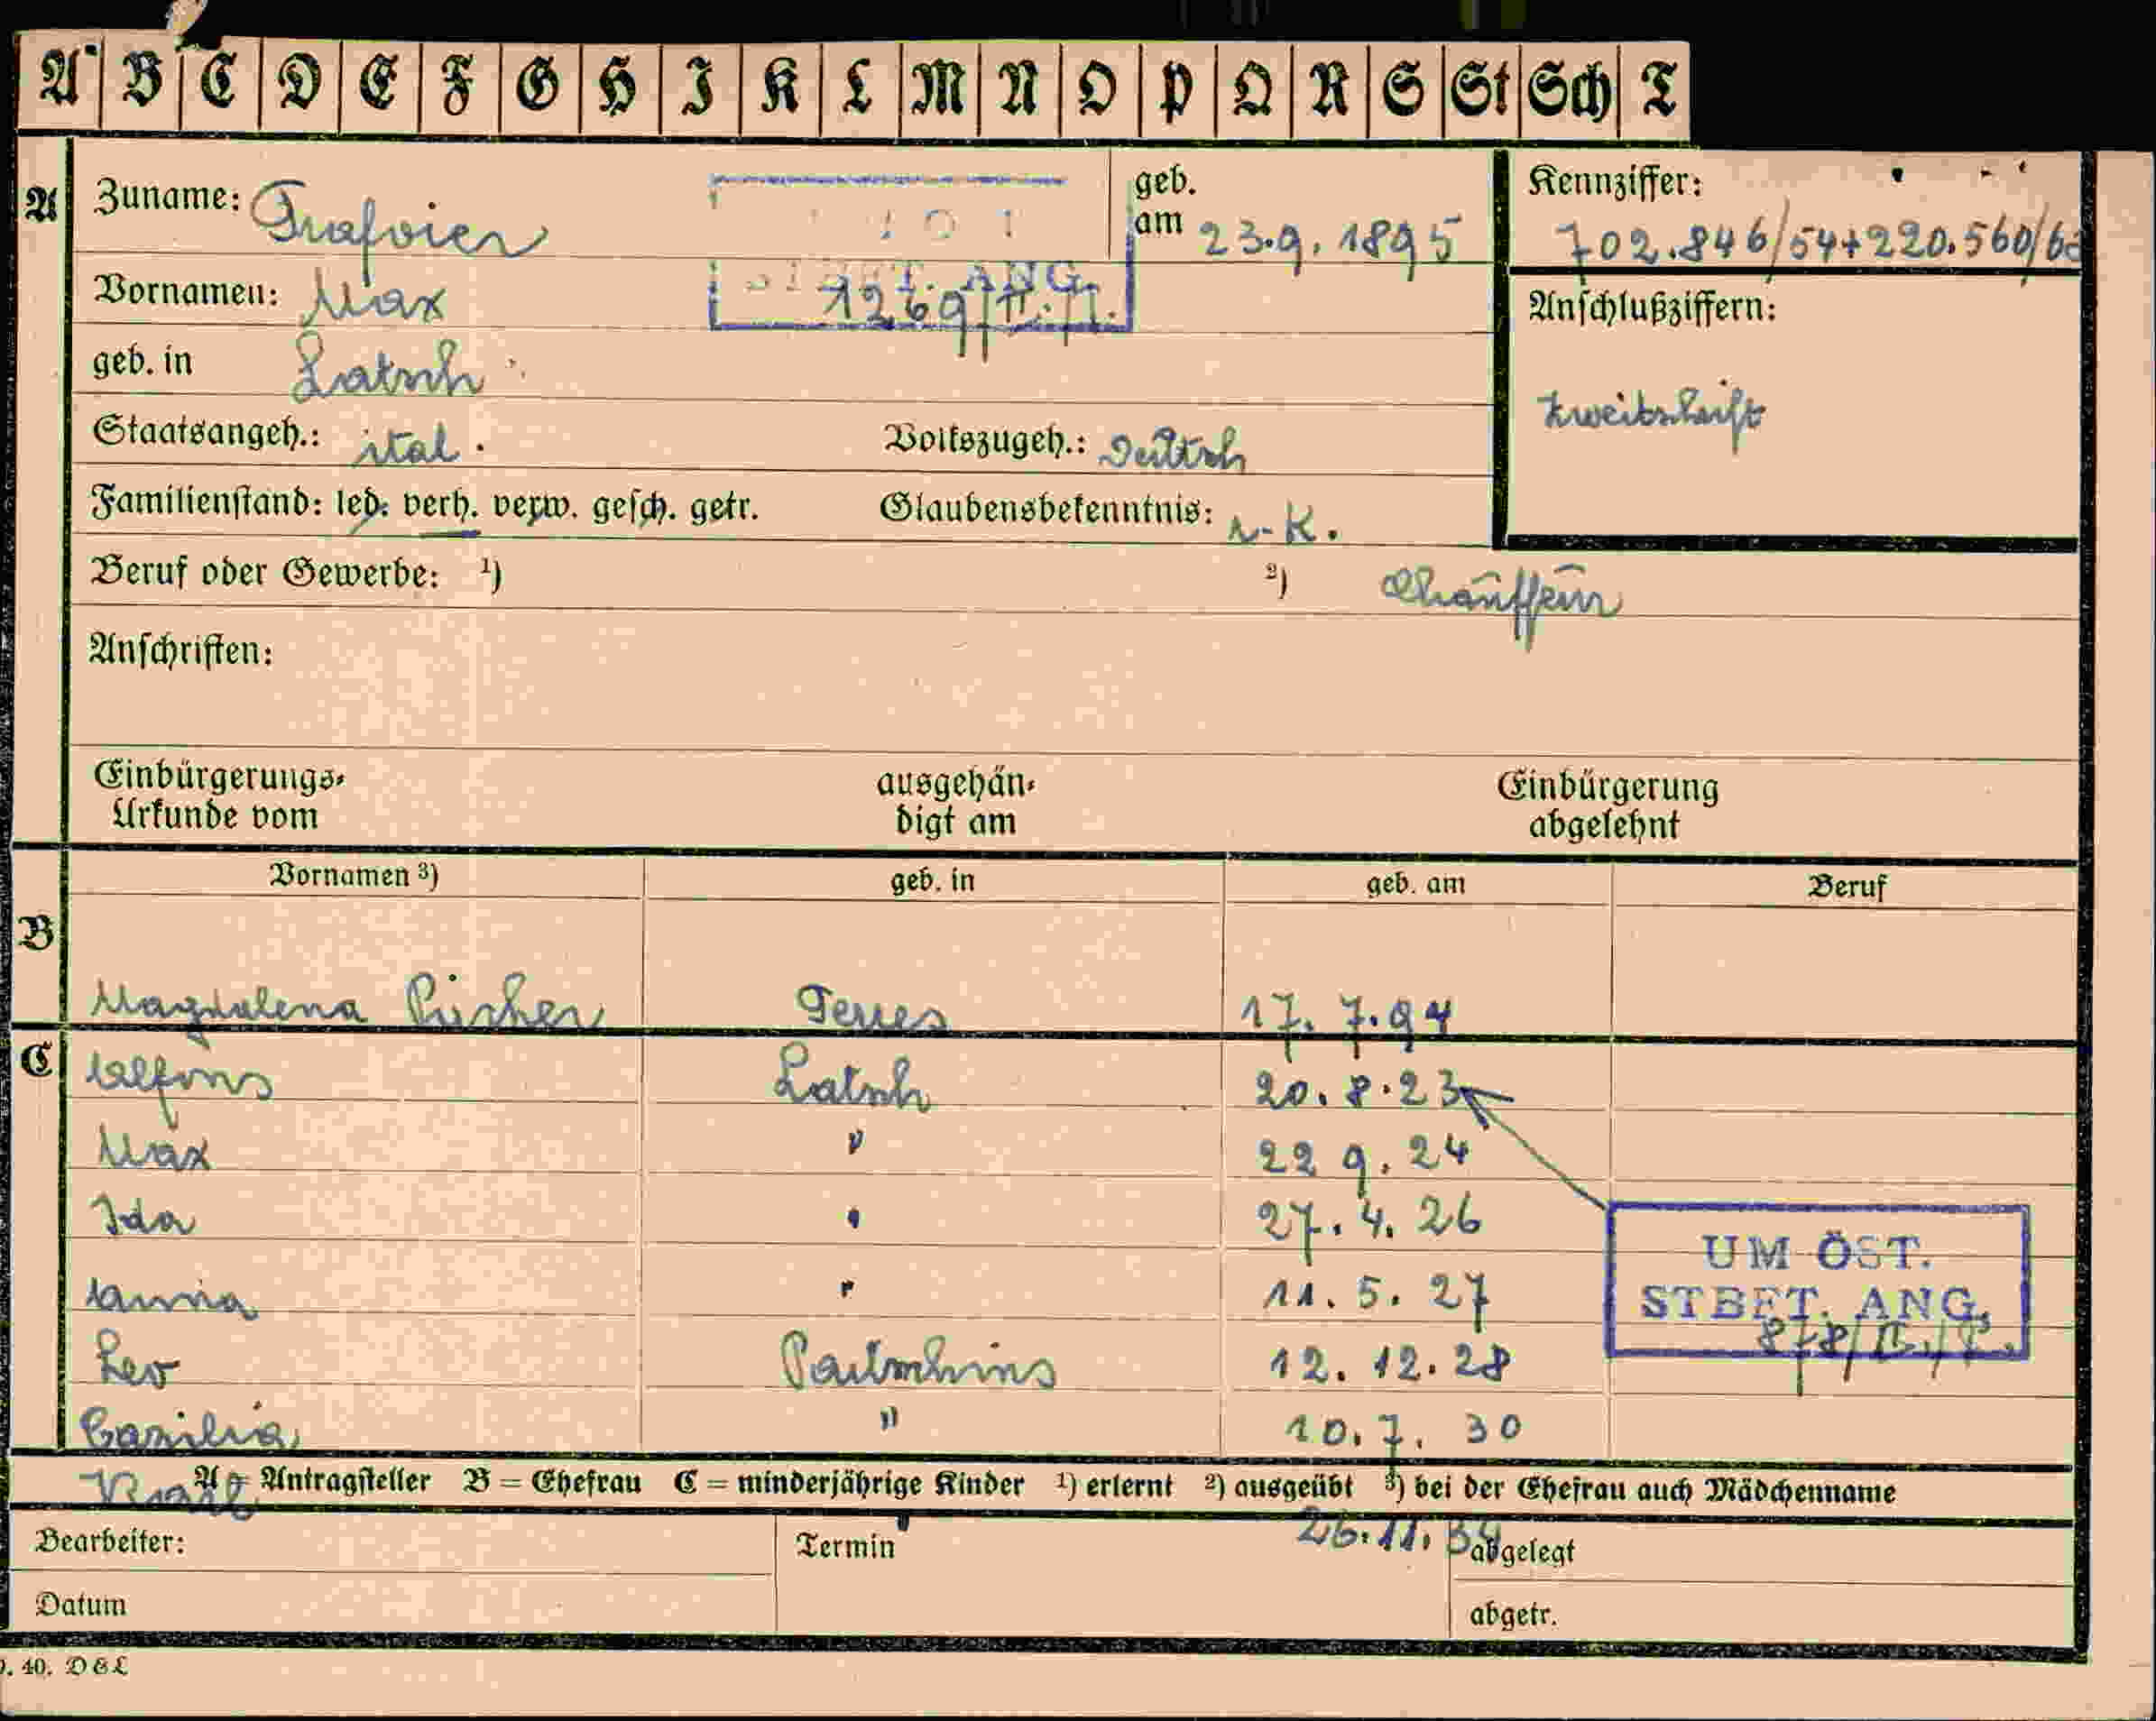 A B C D E F G H I K L M N O P Q R S St Sch T
A
Zuname: Trafoier
geb. am 23.9.1895
Kennziffer:
702.846/54+220.560/6
Vornamen: Max
STBET. ANG.
1269/II./
Anschlußziffern:
geb. in Latsch
Zweitschrift
Staatsangeh.: ital. Volkszugeh.: Deutsch
Familienstand: led. verh. verw. gesch. getr. Glaubensbekenntnis: r-K.
Beruf oder Gewerbe: 1) 2) Chauffeur
Anschriften:
Einbürgerungs-
Urkunde vom
ausgehän-
digt am
Einbürgerung
abgelehnt
B
Vornamen 3) geb. in geb. am Beruf
Magdalena Pircher 17. 7. 94
C
Alfons Latsch 20. 8. 23
Max " 22 9. 24
Ida " 27. 4. 26
Anna " 11. 5. 27
UM ÖST.
STBET. ANG.
878/II./
Leo 12. 12. 28
Cäzilia " 10. 7. 30
Karl 26. 11. 34
A = Antragsteller B = Ehefrau C = minderjährige Kinder 1) erlernt 2) ausgeübt 3) bei der Ehefrau auch Mädchenname
Bearbeiter: Termin abgelegt
Datum abgetr.
40. D&L